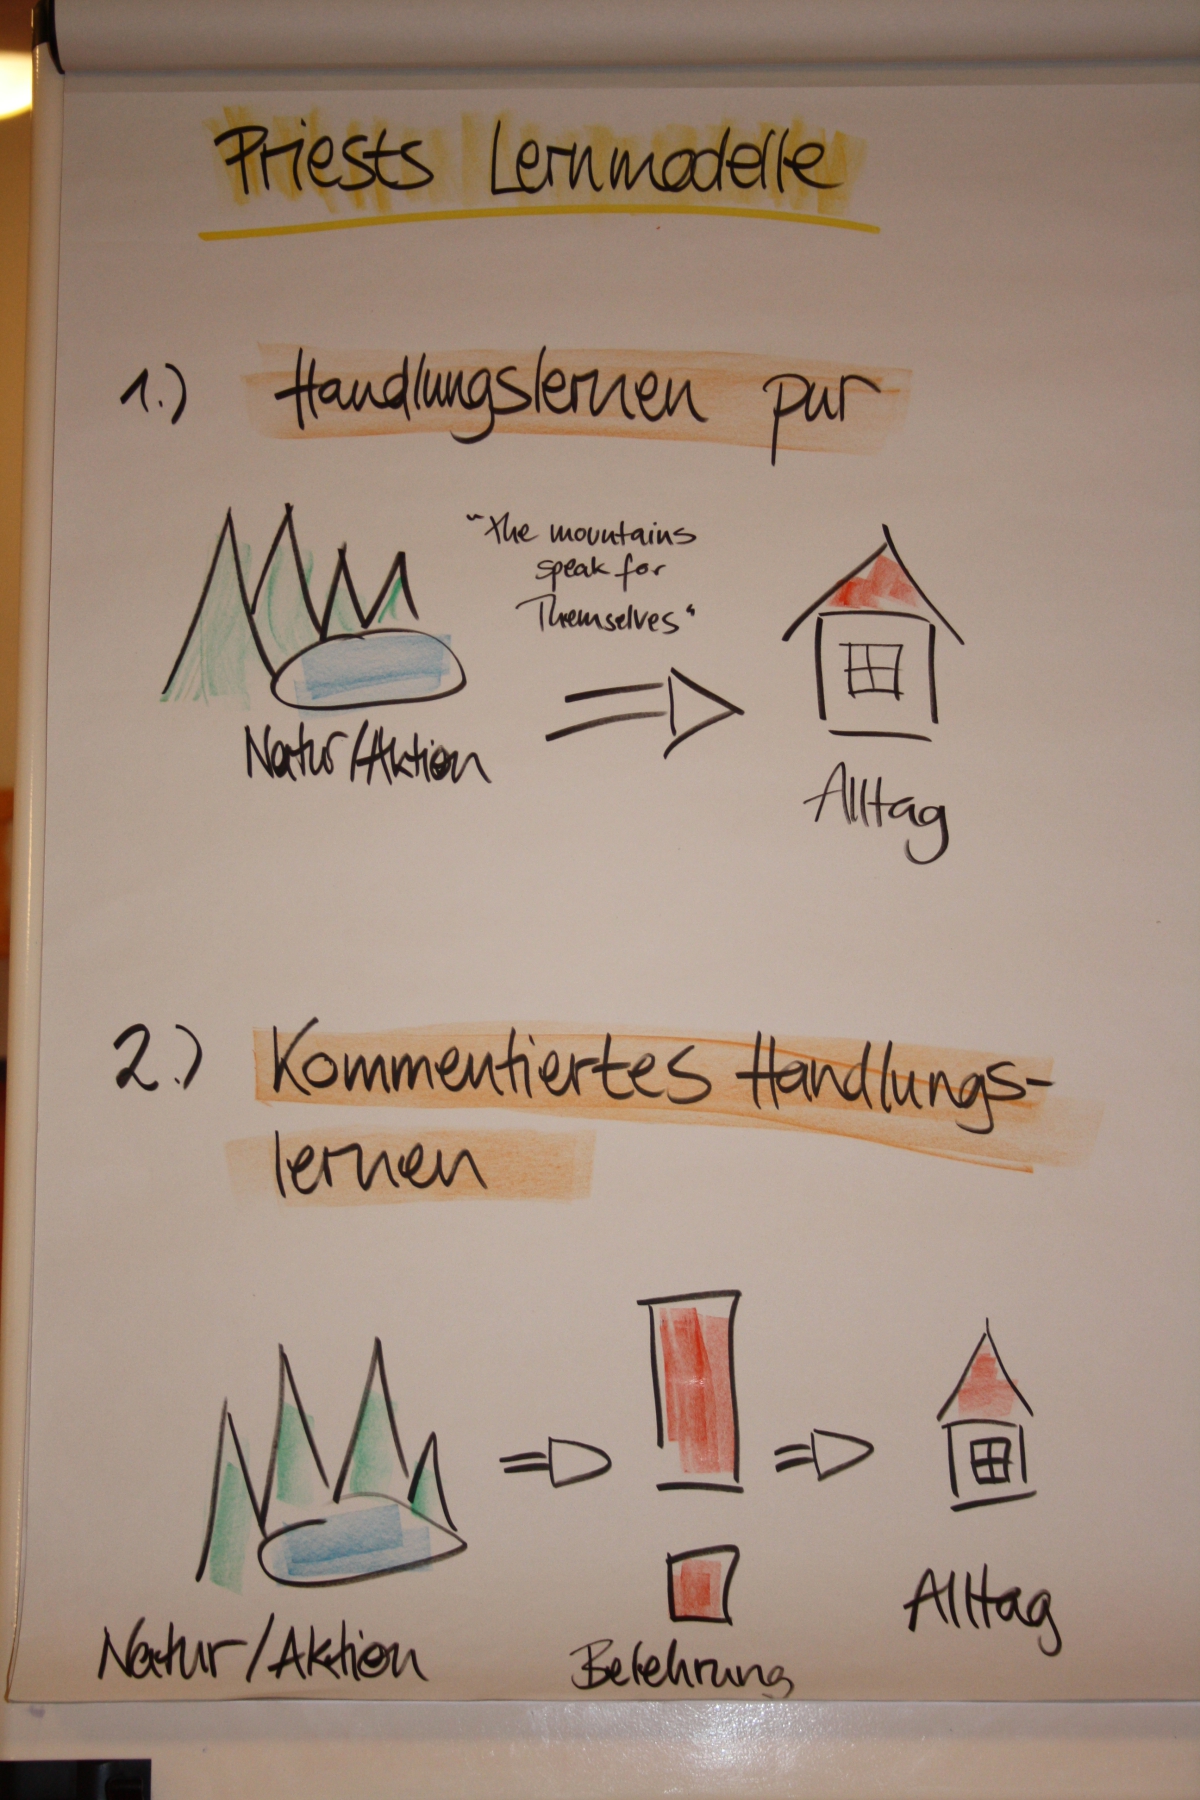 Priests Lernmodelle
1.) Handlungslernen pur
"The mountains
speak for
Themselves"
Natur/Aktion
Alltag
2.) Kommentiertes Handlungs-
lernen
Natur/Aktion
Belehrung
Alltag